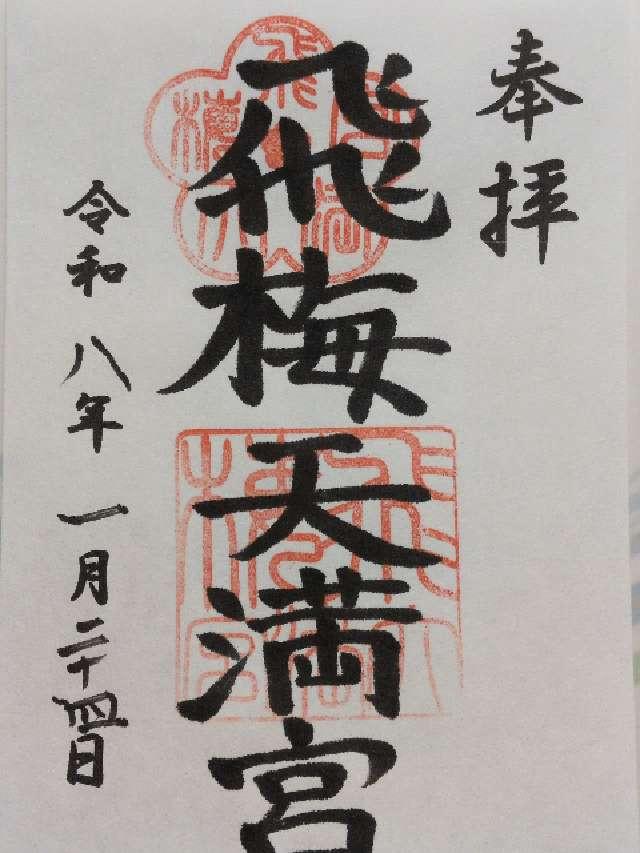 奉拝
飛梅天満宮
令和八年一月二十四日